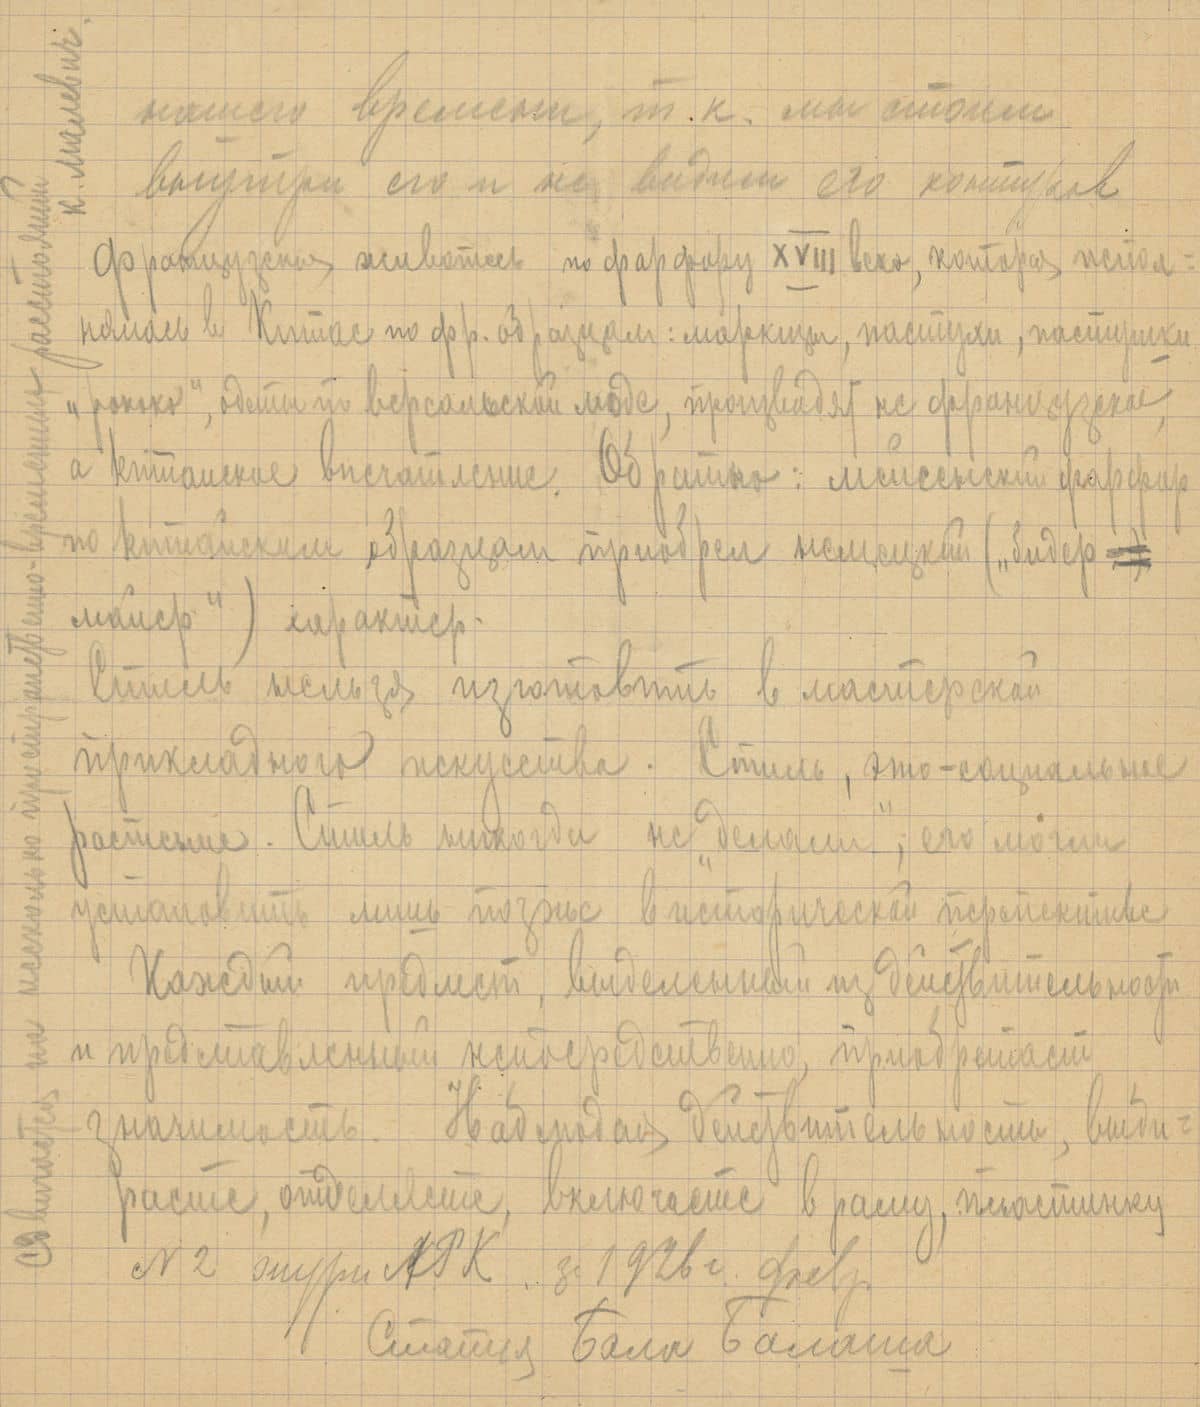 нашего времени, т.к. мы стоим
внутри его и не видим его контуров
Французская живопись по фарфору XVIII века, которая испол=
нялась в Китае по фр. образцам: маркизы, пастухи, пастушки
„рококо“, одеты по версальской моде, производят не французское,
а китайское впечатление. Обратно: мейсенский фарфор
по китайским образцам приобрел немецкий („бидер
майер“) характер.
Стиль нельзя изготовить в мастерской
прикладного искусства. Стиль, это-социальное
растение. Стиль никогда не „делали“; его могли
установить лишь позже в исторической перспективе
Каждый предмет, выделенный из действительности
и представленный непосредственно, приобретает
значимость. Наблюдая действительность, выби=
раете, отделяете, включаете в раму, пластинку
N 2 журн АРК за 1926 г. февр.
Статья Бела Балаша
Сдвигается на несколько пространственно-временных расстояний
К. Малевич.